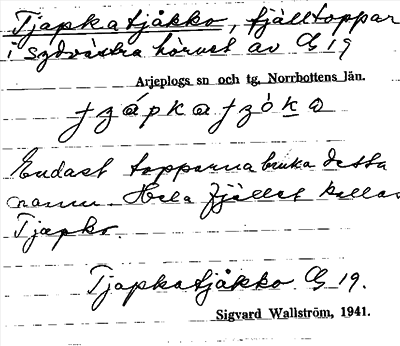 Tjapkatjåkko, fjälltoppar
i sydvästra hörnet av G 19
Arjeplogs sn och tg, Norrbottens län.
Endast topparna bruka detta
namn. Hela fjället kallas
Tjapko.
Tjapkatjåkko. G 19.
Sigvard Wallström, 1941.